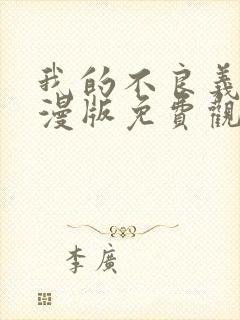 我的不良義
漫版免費觀
李廣